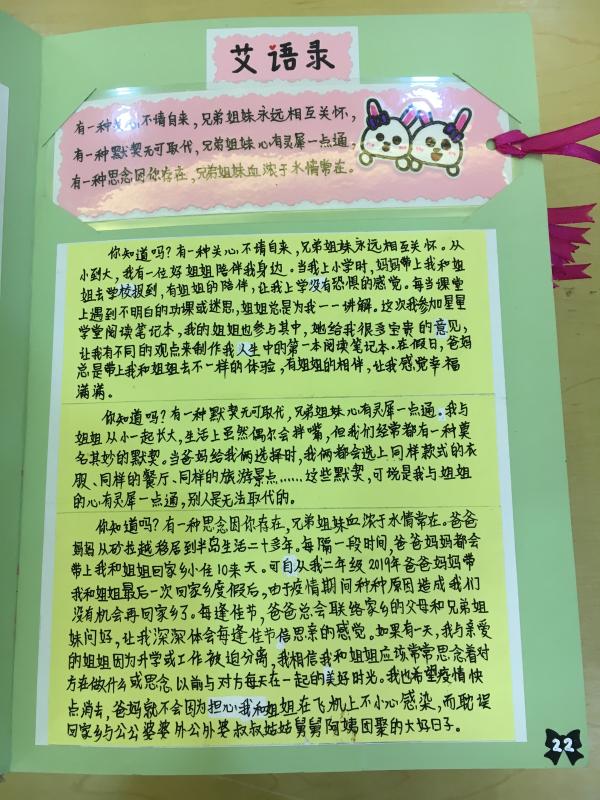 艾语录
有一种关心不请自来，兄弟姐妹永远相互关怀，
有一种默契无可取代，兄弟姐妹心有灵犀一点通，
有一种思念因你存在，兄弟姐妹血浓于水情常在。
你知道吗？有一种关心不请自来，兄弟姐妹永远相互关怀。从
小到大，我有一位好姐姐陪伴我身边。当我上小学时，妈妈带上我和姐
姐去学校报到，有姐姐的陪伴，让我上学没有恐惧的感觉。每当课堂
上遇到不明白的功课或迷思，姐姐总是为我一一讲解。这次我参加星星
学堂阅读笔记本，我的姐姐也参与其中，她给我很多宝贵的意见，
让我有不同的观点来制作我人生中的第一本阅读笔记本。在假日，爸妈
总是带上我和姐姐去不一样的体验，有姐姐的相伴，让我感觉幸福
满满。
你知道吗？有一种默契无可取代，兄弟姐妹心有灵犀一点通。我与
姐姐从小一起长大，生活上虽然偶尔会拌嘴，但我们经常都有一种莫
名其妙的默契。当爸妈给我俩选择时，我俩都会选上同样款式的衣
服、同样的餐厅、同样的旅游景点……这些默契，可说是我与姐姐
的心有灵犀一点通，别人是无法取代的。
你知道吗？有一种思念因你存在，兄弟姐妹血浓于水情常在。爸爸
妈妈从砂拉越移居到半岛生活二十多年。每隔一段时间，爸爸妈妈都会
带上我和姐姐回家乡小住10来天。可自从我二年级2019年爸爸妈妈带
我和姐姐最后一次回家乡度假后，由于疫情期间种种原因造成我们
没有机会再回家乡了。每逢佳节，爸爸总会联络家乡的父母和兄弟姐
妹问好，让我深深体会每逢佳节倍思亲的感觉。如果有一天，我与亲爱
的姐姐因为升学或工作被迫分离，我相信我和姐姐应该常常思念着对
方在做什么或思念以前与对方每天在一起的美好时光。我也希望疫情快
点消去，爸妈就不会因为担心我和姐姐在飞机上不小心感染，而耽误
回家乡与公公婆婆外公外婆叔叔姑姑舅舅阿姨团聚的大好日子。
22